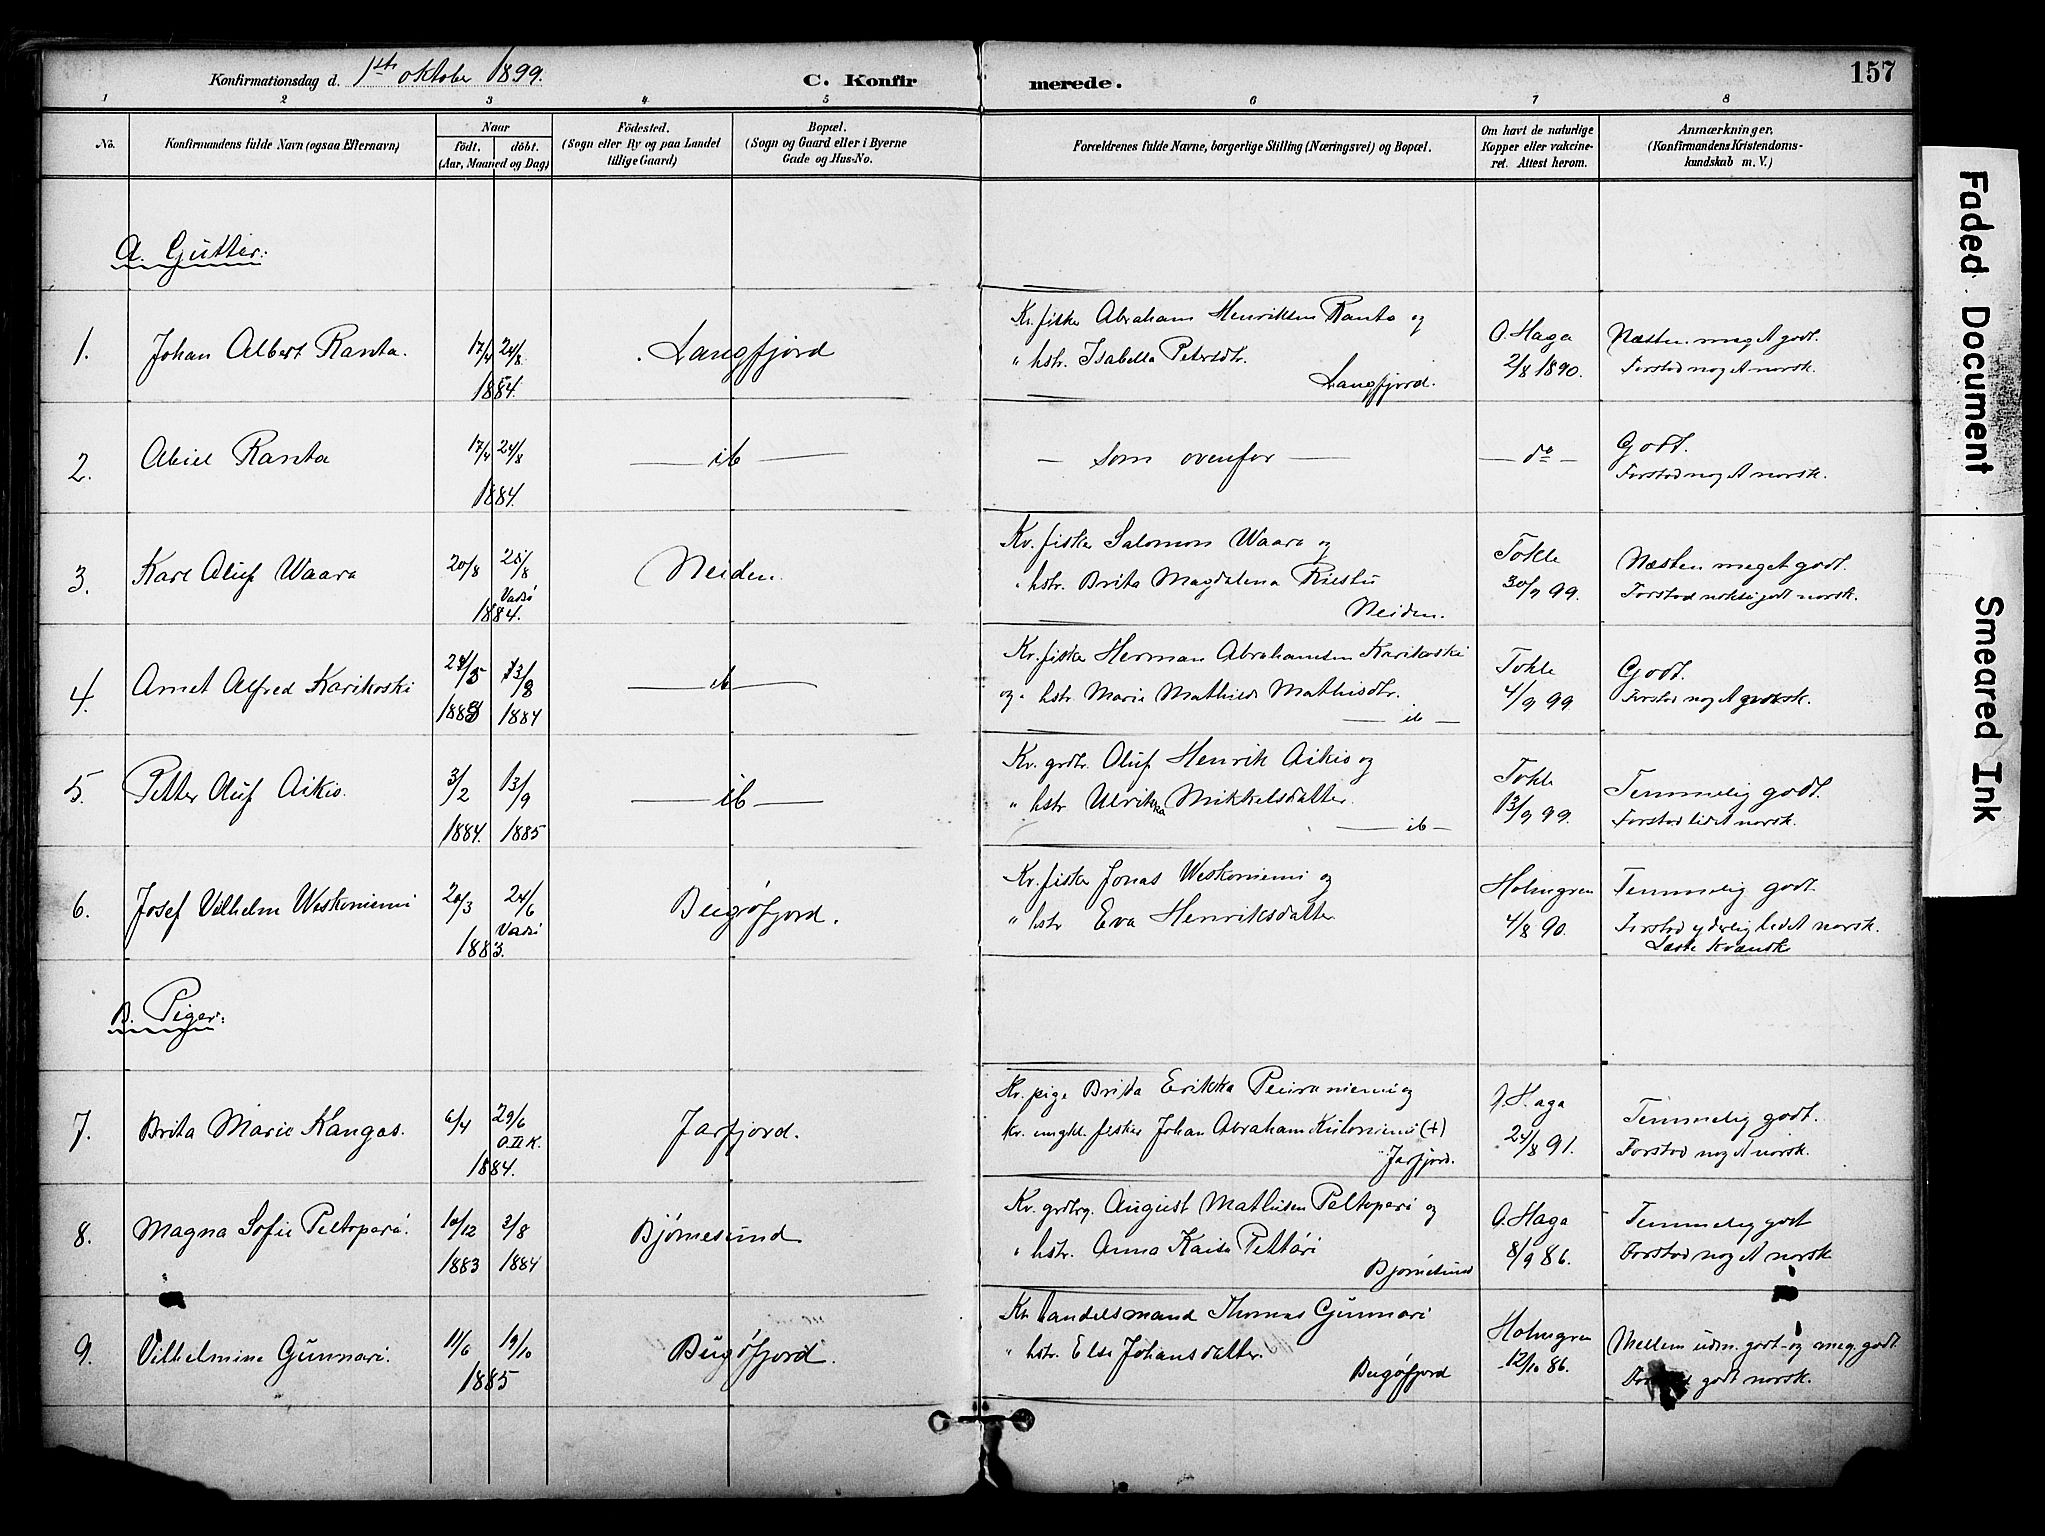 Konfirmationsdag d. 1ste oktober 1899.
C. Konfirmerede.
157
1 2 3 4 5 6 7 8
No.
Konfirmandens fulde Navn (ogsaa Efternavn)
Naar
födt. döbt.
(Aar, Maaned og Dag)
Födested.
(Sogn eller By og paa Landet
tillige Gaard)
Bopæl.
(Sogn og Gaard eller i Byerne
Gade og Hus-No.
Forældrenes fulde Navne, borgerlige Stilling (Næringsvei) og Bopæl.
Om havt de naturlige
Kopper eller vakcine-
ret. Attest herom.
Anmærkninger,
(Konfirmandens Kristendoms-
kundskab m. V.)
A. Gutter:
1. Johan Albert Ranta. 17/4 24/8. 1884. Langfjord
Kv. fisker Abraham Henriksen Ranta og
" hstr. Isabella Petersdtr.
Langfjord.
O. Haga
2/8 1890.
Næsten meget godt.
Forstod noget norsk.
2. Abiel Ranta 17/4 24/8 1884. — ib —
— Som ovenfor —
— do —
Godt.
Forstod noget norsk.
3. Karl Oluf Waara 20/8 28/8 Vadsö 1884. Neiden.
Kv. fisker Salomon Waara og
" hstr. Brita Magdalena
Neiden.
Tokle
30/9 99.
Næsten meget godt.
Forstod nokså godt norsk.
4. Amet Alfred Karikoski 13/8 1884 — ib —
Kv. fisker Herman Abrahamsen Karikoski
og " hstr. Maria Mathilde Mathisdtr.
— ib —
Tokle
4/9 99.
Godt.
Forstod noget norsk.
5. Petter Oluf Aikio. 3/2 1884. 13/9 1885 — ib —
Kv. grdbr. Oluf Henrik Aikio og
" hstr Ulrikka Mikkelsdatter.
— ib —
Tokle
13/9 99.
Temmelig godt.
Forstod lidet norsk.
6. Josef Vilhelm Weskoniemi 20/3 24/6 Vadsö 1883. Bugöfjord.
Kv. fisker Jonas Weskoniemi og
" hstr Eva Henriksdatter
Holmgren
4/8 90.
Temmelig godt.
Forstod yderlig lidet norsk.
Læste kvænsk
B. Piger:
7. Brita Marie Kangas. 6/4 29/6 1884. Jarfjord.
Kv. pige Brita Erikka Peuraniemi og
Kv. ungkl. fisker Johan Abraham Kuloniemi (+)
Jarfjord.
O. Haga
24/8 91.
Temmelig godt.
Forstod noget norsk.
8. Magna Sofie Peltoperä. 10/12 1883 3/8 1884 Björnesund
Kv. grdbrg. August Mathisen Peltoperä og
" hstr. Anna Kaisa Pettäri
Björnesund
O. Haga
8/9 86.
Temmelig godt
Forstod noget norsk
9. Vilhelmine Gunnari. 11/6 19/10 1885 Bugöfjord.
Kv. handelsmand Thomas Gunnari
" hstr. Else Johansdatter.
Bugöfjord
Holmgren
12/10 86.
Mellem udm. godt og meg. godt
godt norsk.
Faded Document
Smeared Ink